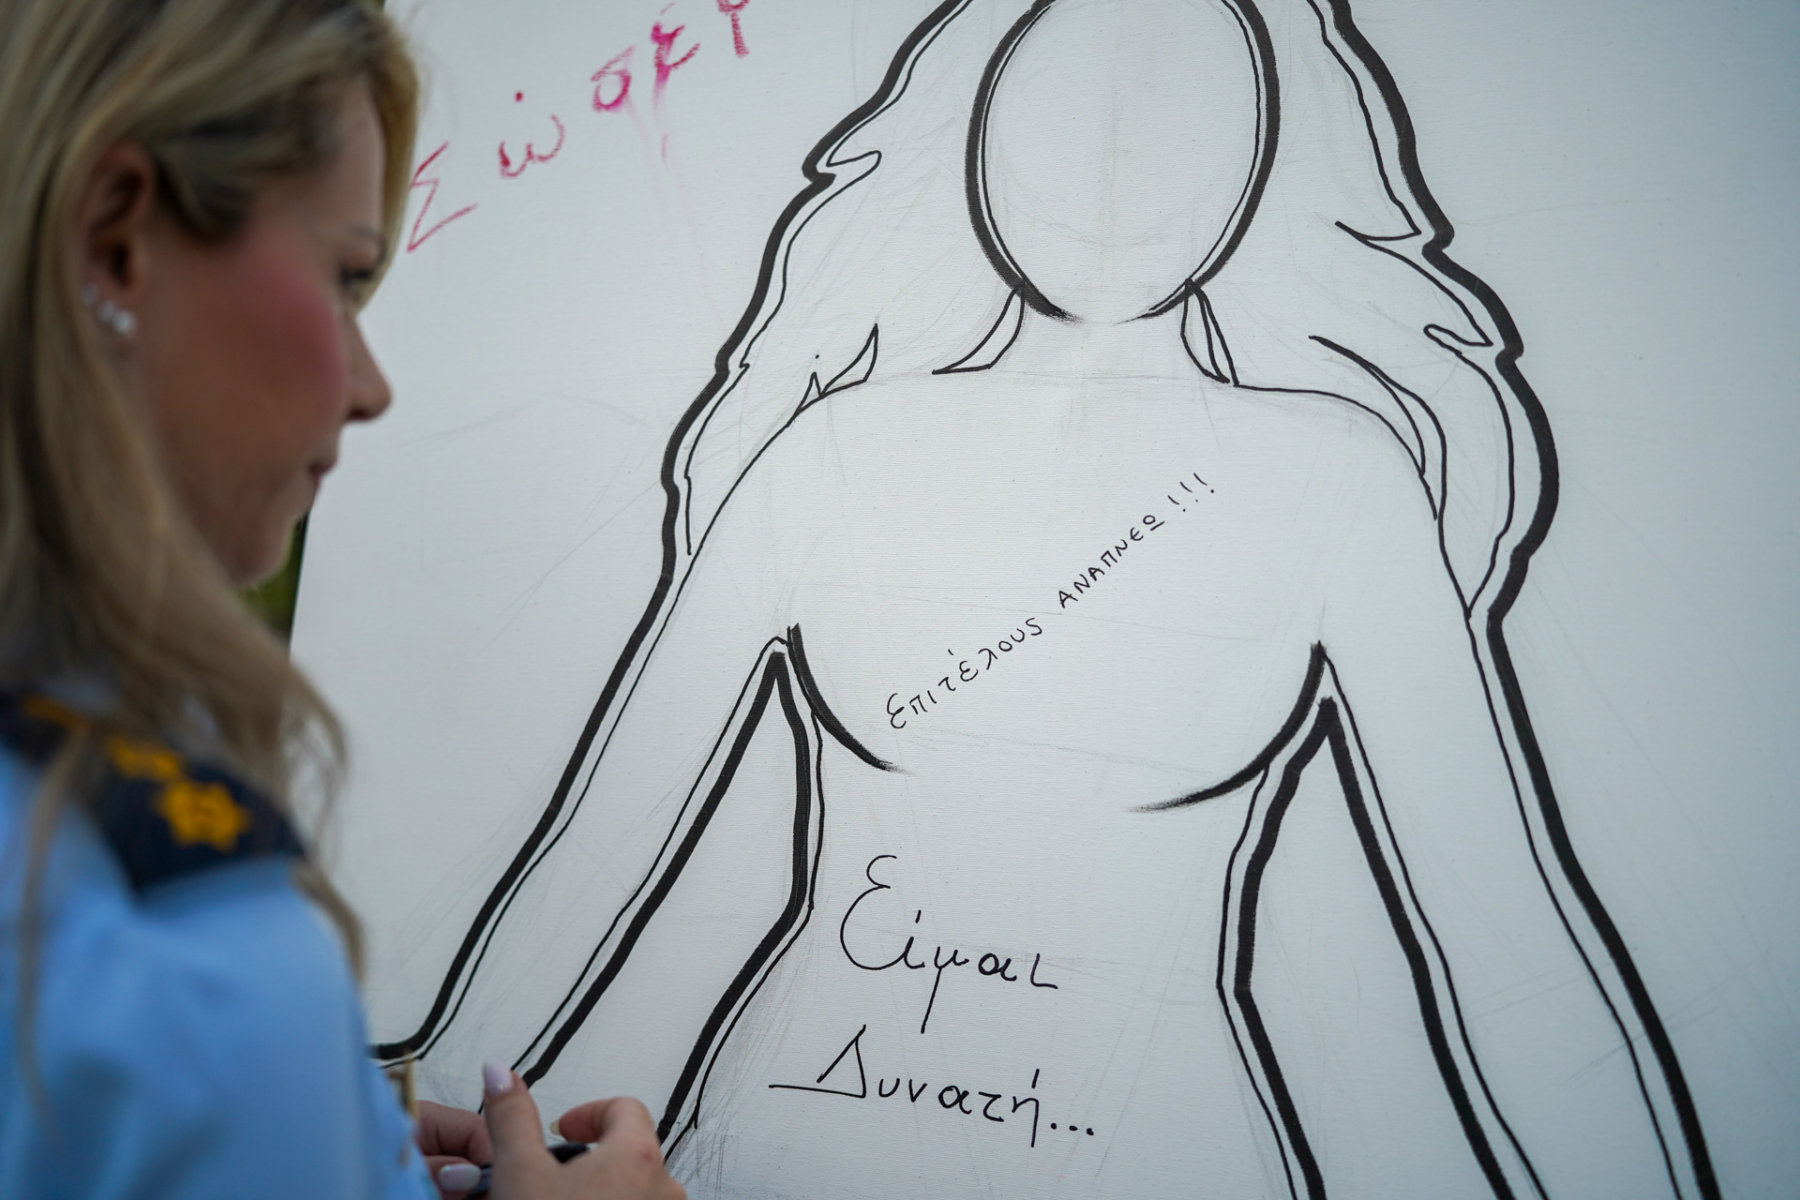 Επιτέλους ΑΝΑΠΝΕΩ!!!
Είμαι
Δυνατή...